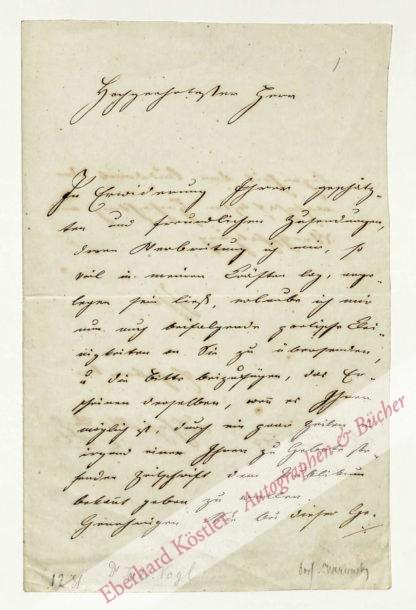 Hochgeehrtester Herr
In Erwiderung Ihrer geschätz-
ten und freundlichen Zusendungen,
deren Verbreitung ich mir, so
viel in meinen Kräften lag, ange-
legen sein ließ, erlaube ich mir
nun auch beifolgende poetische Klei-
nigkeiten an Sie zu übersenden,
u die Bitte beizufügen, das Er-
scheinen derselben, wenn es Ihnen
möglich ist, durch ein paar Zeilen in
irgend einer Ihnen zu Gebote ste-
henden Zeitschrift dem Publikum
bekannt geben zu wollen.
Genehmigen Sie bei dieser Ge-
Eberhard Köstler Autographen & Bücher
12
Vogl